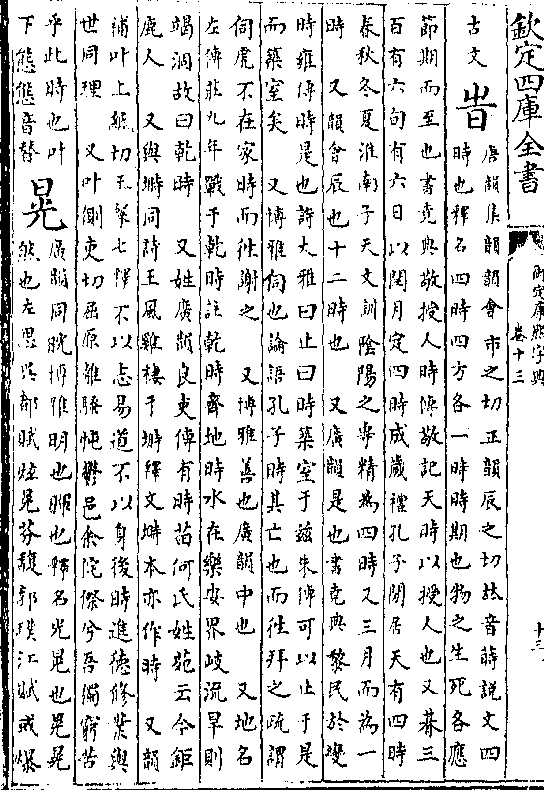 欽定四庫全書
御定康熙字典
卷十三
十三
古文
旹
唐韻集韻韻會市之切正韻辰之切𠀤音蒔説文四
時也釋名四時四方各一時時期也物之生死各應
節期而至也書堯典敬授人時傳敬記天時以授人也又朞三
百有六旬有六日以閏月定四時成歲禮孔子閒居天有四時
春秋冬夏淮南子天文訓陰陽之專精為四時又三月而為一
時　又韻會辰也十二時也　又廣韻是也書堯典黎民於變
時雍傳時是也詩大雅曰止曰時築室于兹朱傳可以止于是
而築室矣　又博雅伺也論語孔子時其亡也而往拜之疏謂
伺虎不在家時而往謝之　又博雅善也廣韻中也　又地名
左傳莊九年戰于乾時註乾時齊地時水在樂安界岐流旱則
竭涸故曰乾時　又姓廣韻良吏傳有時苗何氏姓苑云今鉅
鹿人　又與塒同詩王風雞棲于塒釋文塒本亦作時　又韻
補叶上紙切王粲七釋不以志易道不以身後時進德修業與
世同理　又叶側吏切屈原離騷忳鬱邑余侘傺兮吾獨窮苦
乎此時也叶
下態態音替
晃
廣韻同晄博雅明也暉也釋名光晃也晃晃
然也左思吳都賦炫晃芬馥郭璞江賦或爆